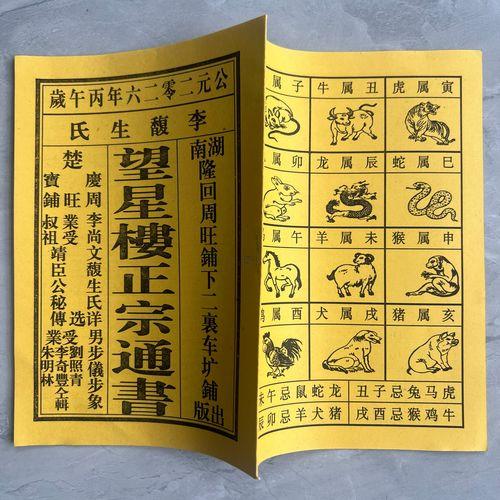 公元二零二六年丙午歲
李馥生氏
湖南隆回周旺鋪下二裏车圹鋪出版
望星樓正宗通書
慶周李尚文馥生氏详男步儀步象
楚旺業受选受劉照青李奇豐仝輯
寶鋪叔祖靖臣公秘傳業朱明林
属子 牛属丑 虎属寅
属卯 龙属辰 蛇属巳
属午 羊属未 猴属申
属酉 犬属戌 猪属亥
午忌鼠蛇龙 丑子忌兔马虎
卯忌羊犬猪 戌酉忌猴鸡牛